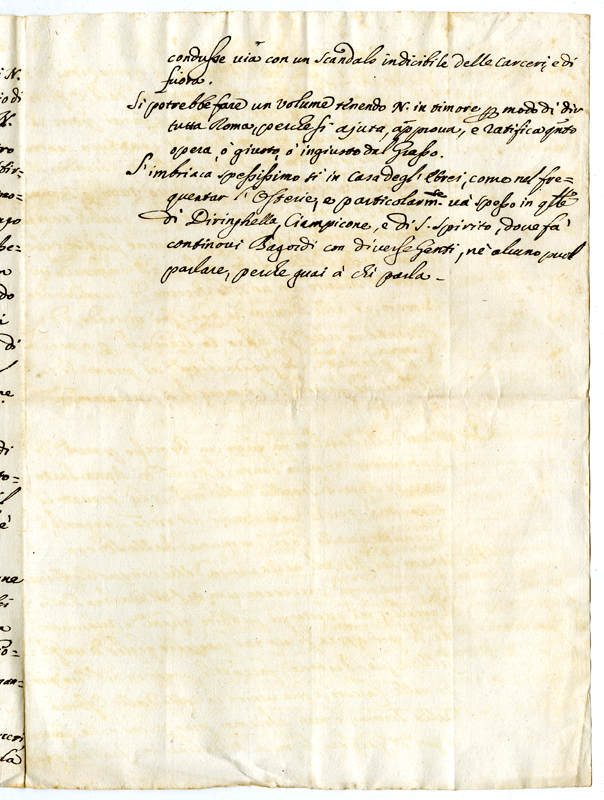 condusse via con un scandalo indicibile delle carceri, e di
fuora.
Si potrebbe fare un volume tenendo N. in timore modo di dir
tutta Roma, perche si ajuta, approva, e ratifica qnto
opera, ò giusto, ò ingiusto dal Grasso.
S'imbriaca spessissimo sì in Casa degl'Ebrei, come nel fre=
quentar l'Osterie, e particolarmte. và spesso in qlle
di Diringhella, Ciampicone, e di S. Spirito, dove fà
continovi Bagordi con diverse Genti, nè alcuno puol
parlare, perche guai à chi parla.